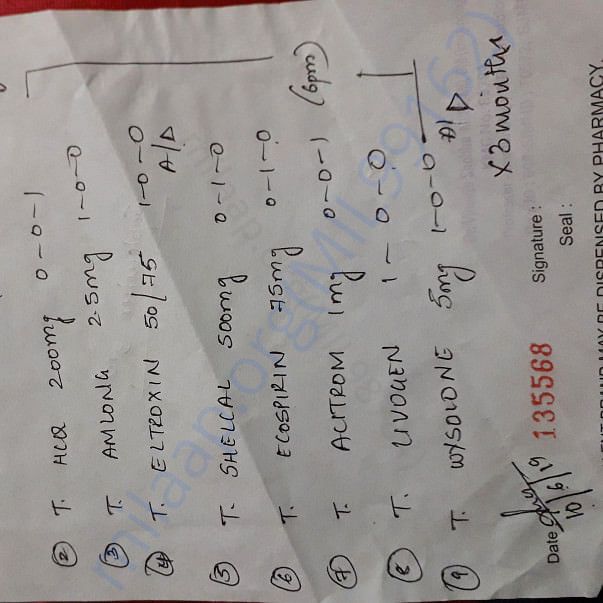 ② T. HCQ 200mg 0-0-1
③ T. AMLONG 2.5mg 1-0-0
④ T. ELTROXIN 50/75 1-0-0
A/D
⑤ T. SHELCAL 500mg 0-1-0
⑥ T. ECOSPIRIN 75mg 0-1-0
⑦ T. ACITROM 1mg 0-0-1 (6pm)
⑧ T. LIVOGEN 1-0-0
⑨ T. WYSOLONE 5mg 1-0-0
A/D
x3 months
Date 10/6/19 135568 Signature :
Seal :
MAY BE DISPENSED BY PHARMACY.
milaap.org(MIL99162)